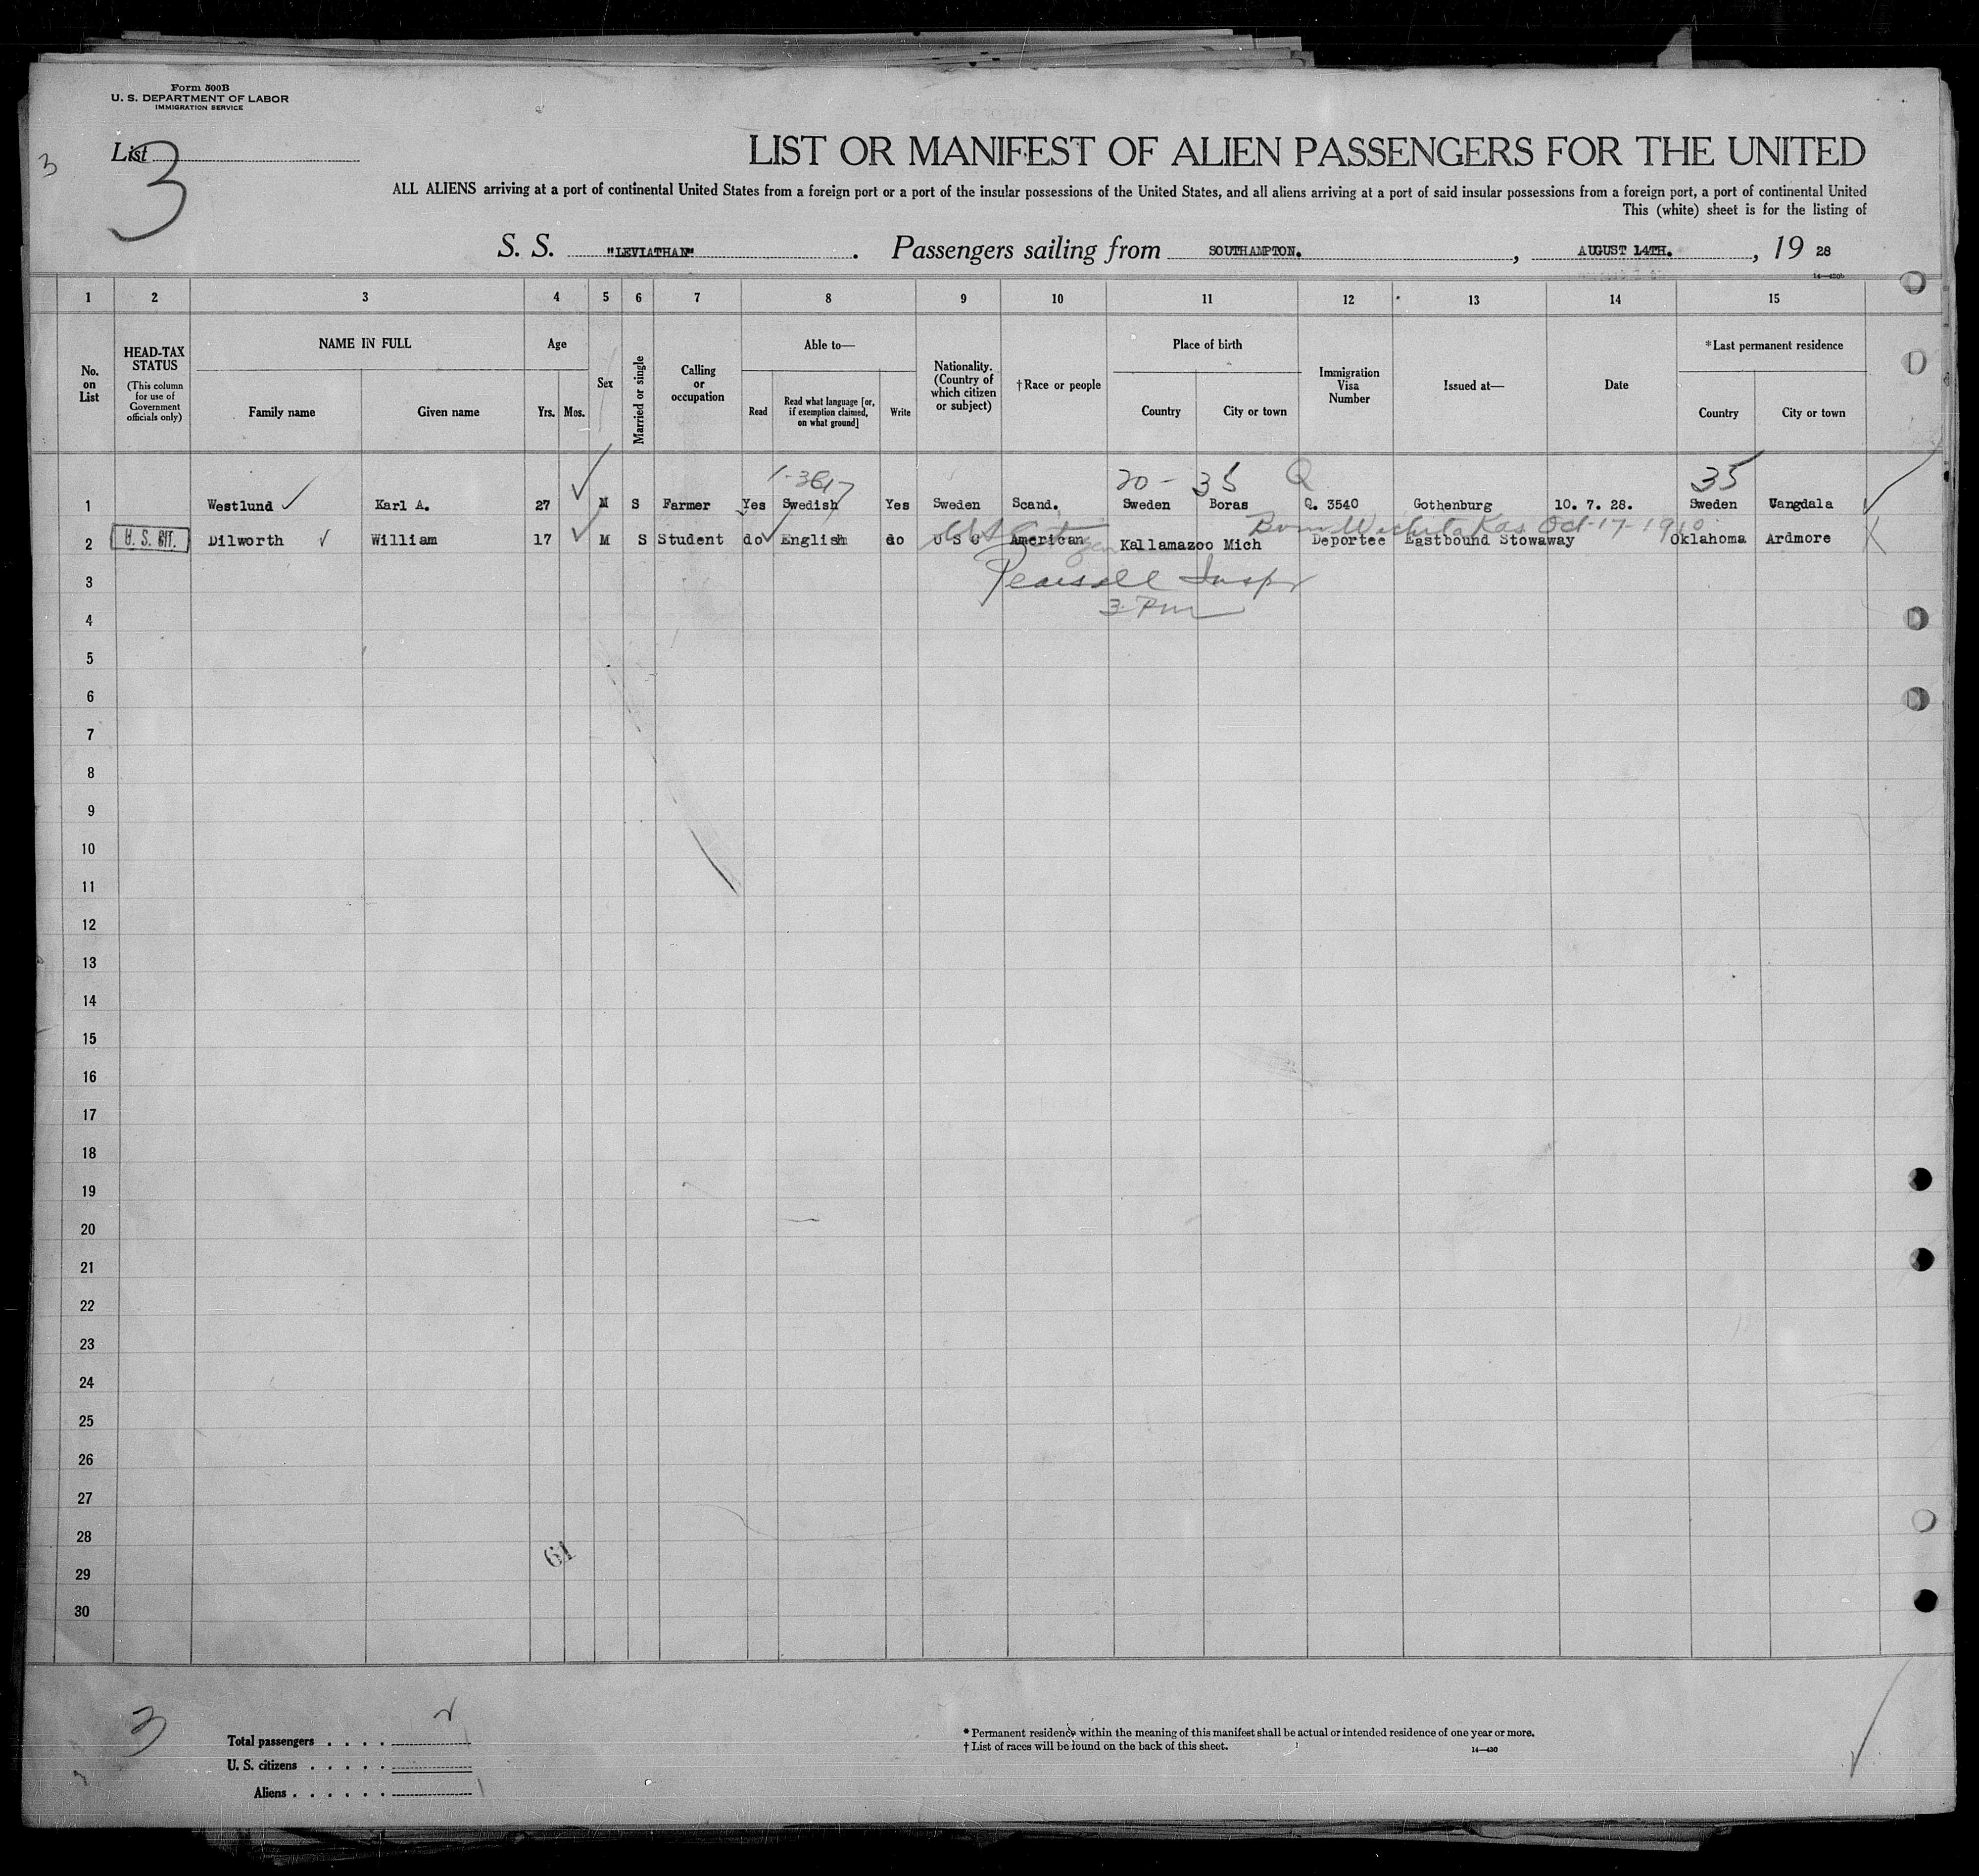 Form 500B
U. S. DEPARTMENT OF LABOR
IMMIGRATION SERVICE
3
List
3
LIST OR MANIFEST OF ALIEN PASSENGERS FOR THE UNITED
ALL ALIENS arriving at a port of continental United States from a foreign port or a port of the insular possessions of the United States, and all aliens arriving at a port of said insular possessions from a foreign port, a port of continental United
This (white) sheet is for the listing of
S. S. "LEVIATHAN". Passengers sailing from SOUTHAMPTON. , AUGUST 14TH. , 19 28
1 2 3 4 5 6 7 8 9 10 11 12 13 14 15
No. on List
HEAD-TAX STATUS
(This column for use of Government officials only)
NAME IN FULL
Family name
Given name
Age
Yrs.
Mos.
Sex
Married or single
Calling or occupation
Able to—
Read
Read what language [or, if exemption claimed, on what ground]
Write
Nationality. (Country of which citizen or subject)
†Race or people
Place of birth
Country
City or town
Immigration Visa Number
Issued at—
Date
*Last permanent residence
Country
City or town
20 - 35 Q 35
1 Westlund Karl A. 27 M S Farmer Yes Swedish Yes Sweden Scand. Sweden Boras Q. 3540 Gothenburg 10. 7. 28. Sweden Vangdala
US Citizen Born Wichita Kas Oct-17-1910
2 U. S. CIT. Dilworth William 17 M S Student do English do U S C American Kallamazoo Mich Deportee Eastbound Stowaway Oklahoma Ardmore
3 Pearsall Inspr
4 3 Pm
5
6
7
8
9
10
11
12
13
14
15
16
17
18
19
20
21
22
23
24
25
26
27
28
61
29
30
3
Total passengers . . . .
U. S. citizens . . . . .
Aliens . . . . . .
* Permanent residence within the meaning of this manifest shall be actual or intended residence of one year or more.
† List of races will be found on the back of this sheet.
14—430